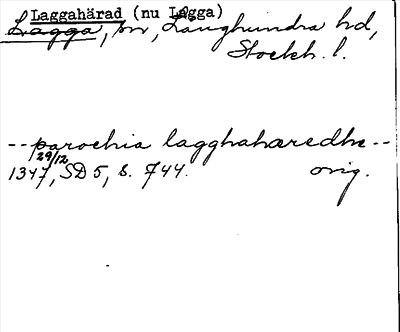 Laggahärad (nu Lagga)
Lagga, sn, Långhundra hd,
Stockh. l.
-- parochia lagghahæredhe --
29/12
1347, SD 5, s. 744. orig.